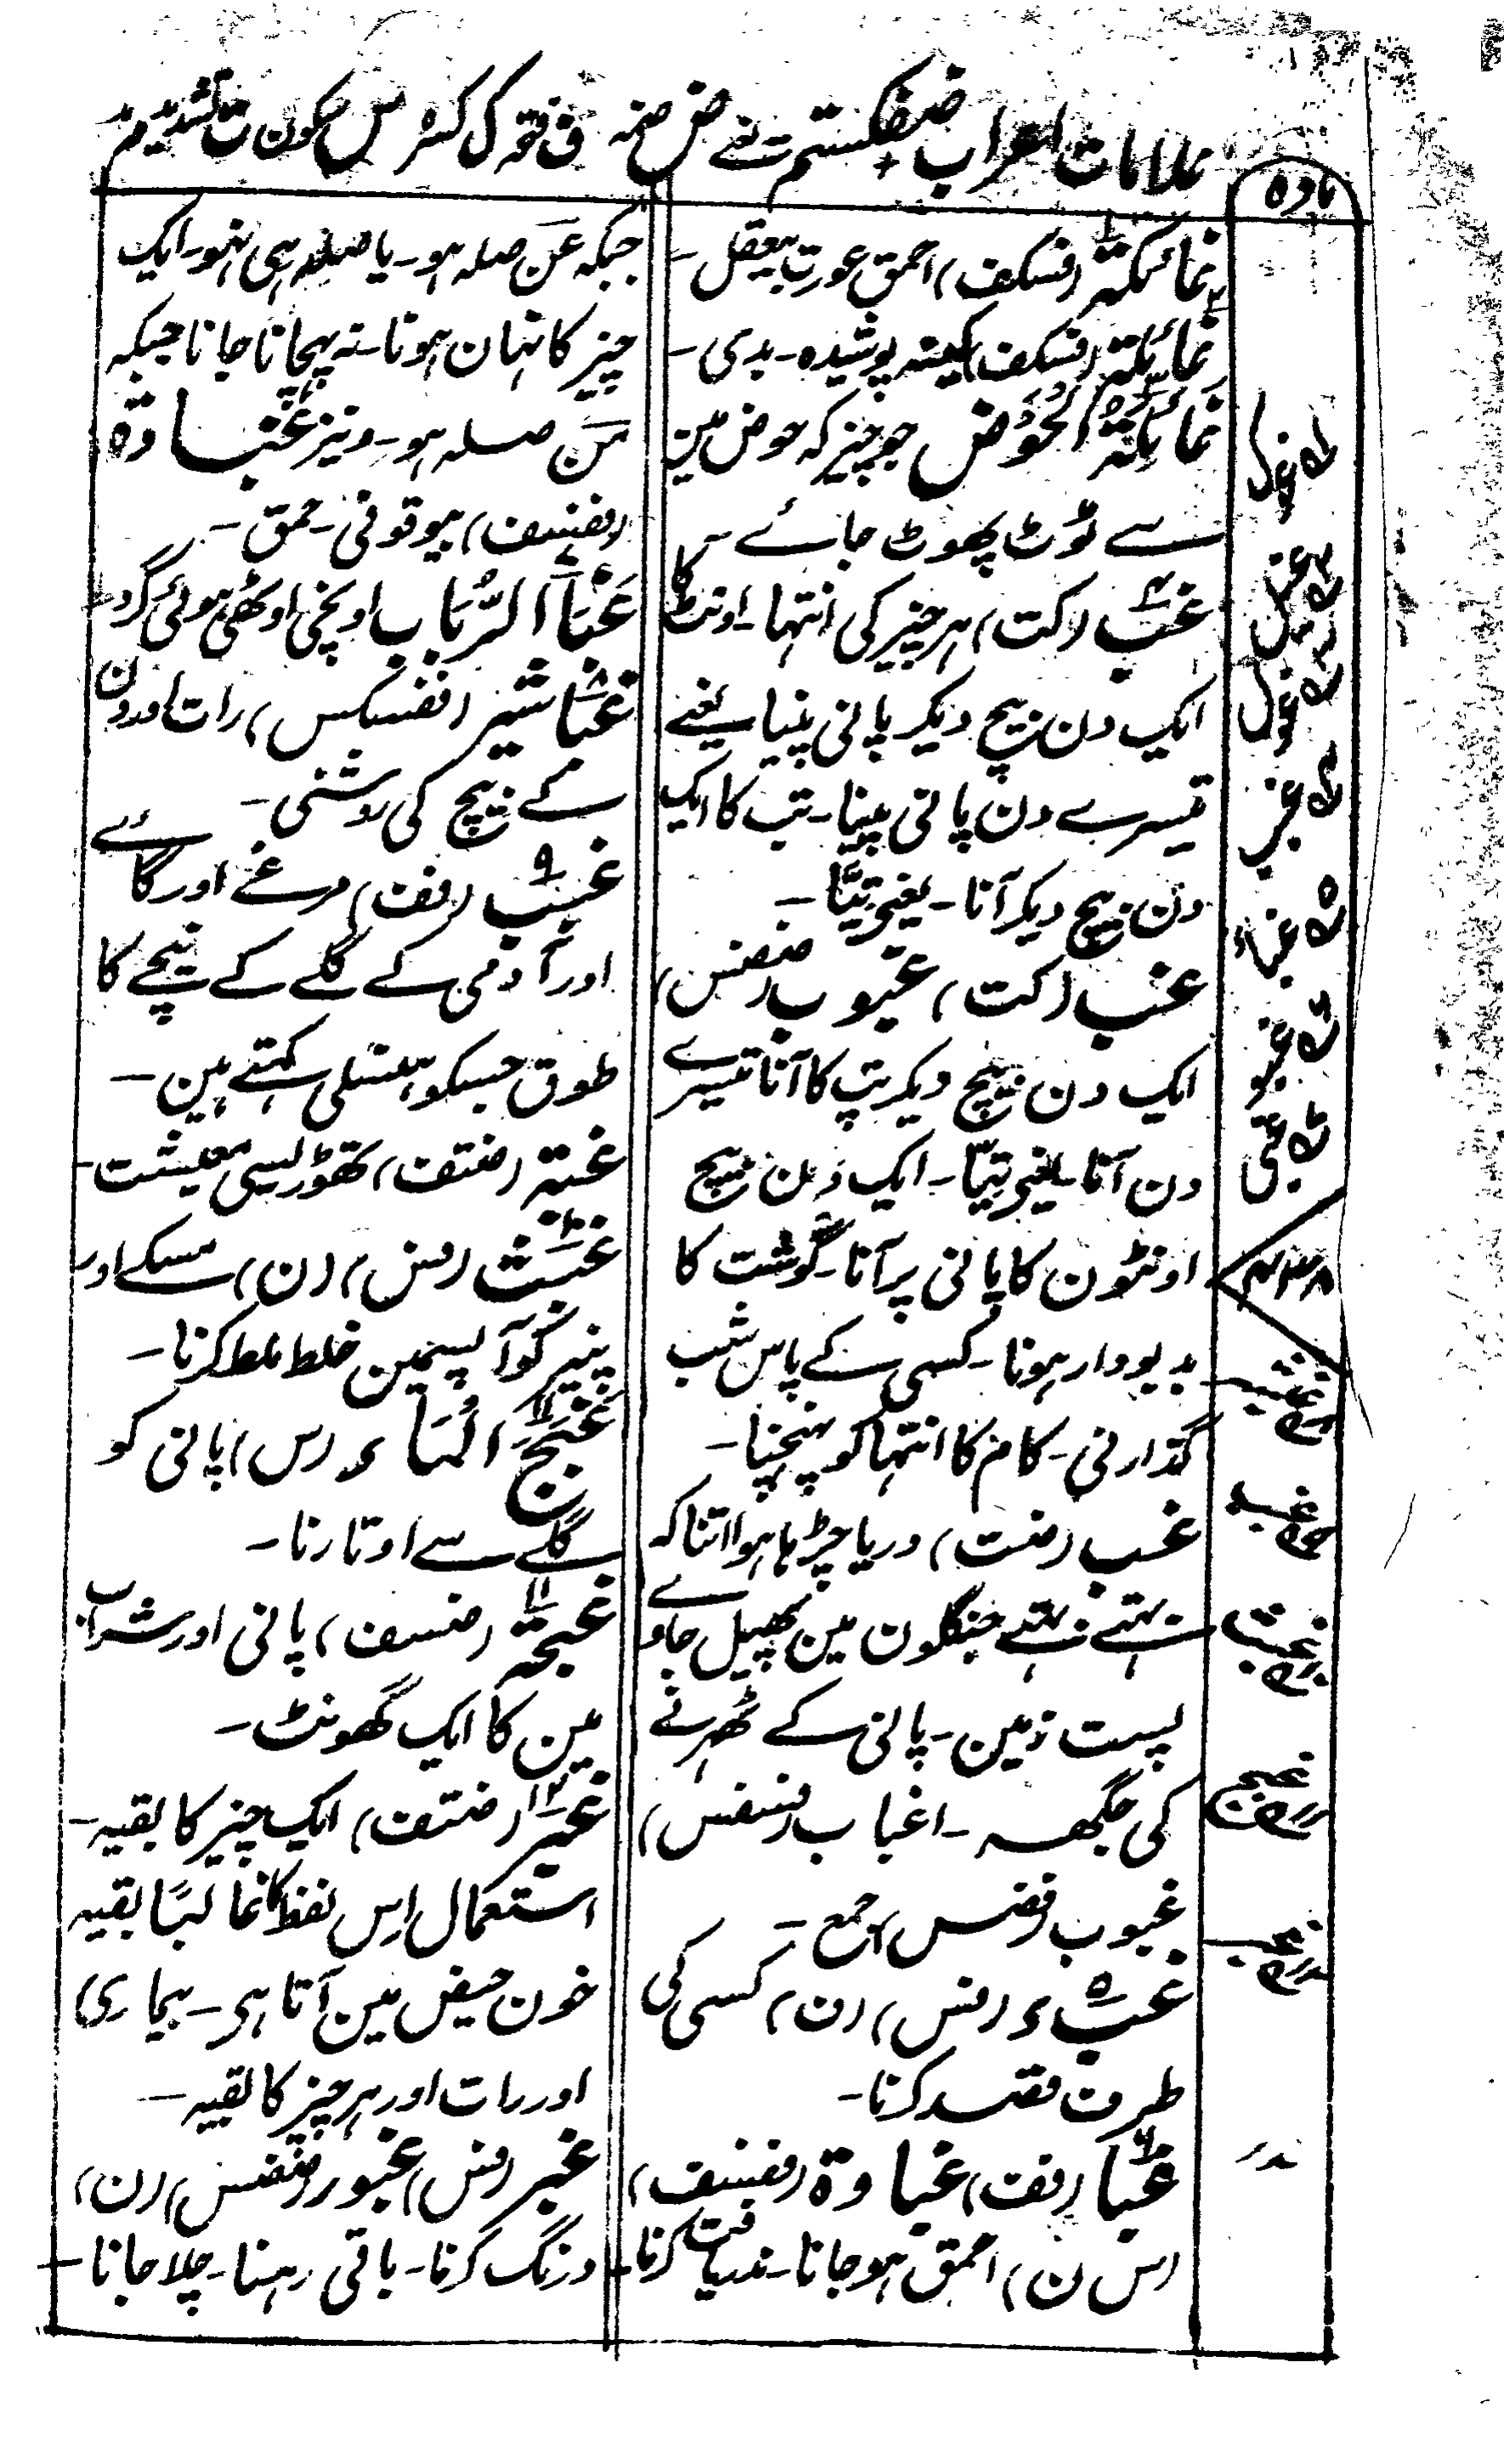 علامات اعراب ضفکستم ت نے ض ضمہ ف فتحہ ک کسرہ س سکون ت تشدید م مد
مادہ
غائکۃ (فسکف) احمق عورت بیعقل -
غائلۃ (فسکف) کینہ پوشیدہ - بدی -
غَائِلَۃُ الْحَوْض جو چیز کہ حوض مین
سے ٹوٹ پھوٹ جائے -
غب (کت) ہر چیز کی انتہا - اونٹ کا
ایک دن بیچ دیکر پانی پینا یعنے
تیسرے دن پانی پینا - تپ کا ایک
دن بیچ دیکر آنا - یعنی تیّا -
غب (کت) غبوب (ضضس)
ایک دن بیچ دیکر تپ کا آنا تیسرے
دن آنا - یعنی تیّا - ایک دن بیچ
اونٹون کا پانی پر آنا - گوشت کا
بدبودار ہونا - کسی کے پاس شب
گذارنی - کام کا انتہا کو پہنچنا -
غب (ضت) دریا چڑہا ہوا اتنا کہ
بہتے بہتے جنگلون مین پھیل جاوے
پست زمین - پانی کے ٹھرنے
کی جگھہ - اغباب (فسفس)
غبوب (ضضس) جمع -
غبء (فس) (ن) کسی کی
طرف قصد کرنا -
غبا (فف) غباوۃ (ففسف)
(س ن) احمق ہو جانا - کرنا -
جبکہ عَن صلہ ہو - یا صلہ ہی نہو - ایک
چیز کا نہان ہونا - نہ پہچانا جانا جبکہ
مَن صلہ ہو - ونیز غباوۃ
(ففسف) بیوقوفی - حمق -
غَبَأُ التُّرَاب اونچی اوٹھی ہوئی گرد -
غباشیر (ففسکس) رات اور دن
کے بیچ کی روشنی -
غبب (فف) مرغے اور گائے
اور آدمی کے گلے کے نیچے کا
طوق جسکو ہنسلی کہتے ہین -
غبۃ (ضتف) تھوڑیسی معیشت -
غبث (فس) (ن) مسکے اور
پنیر کو آپسمین خلط ملط کرنا -
غَبَجَ الْمَاء (س) پانی کو
گلے سے اوتارنا -
غبجۃ (ضسف) پانی اور شراب
مین کا ایک گھونٹ -
غبر (ضتف) ایک چیز کا بقیہ -
استعمال اِس لفظ کا غالبًا بقیہ
خون حیض مین آتا ہی - بیماری
اور رات اور ہر چیز کا بقیہ -
غبر (فس) غبور (ضضس) (ن)
درنگ کرنا - باقی رہنا - چلا جانا -